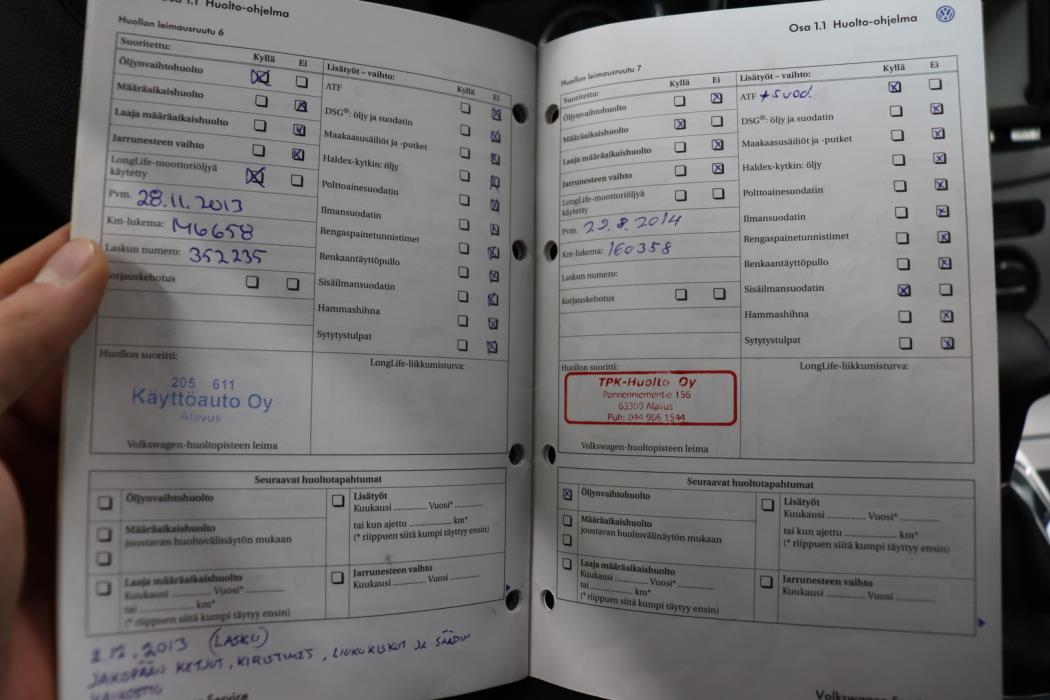 Osa 1.1 Huolto-ohjelma
Huollon leimausruutu 6
Suoritettu: Kyllä Ei
Öljynvaihtohuolto
Määräaikaishuolto
Laaja määräaikaishuolto
Jarrunesteen vaihto
LongLife-moottoriöljyä
käytetty
Pvm. 28.11.2013
Km-lukema: 146658
Laskun numero: 352235
Korjauskehotus
Lisätyöt – vaihto: Kyllä Ei
ATF
DSG®: öljy ja suodatin
Maakaasusäiliöt ja -putket
Haldex-kytkin: öljy
Polttoainesuodatin
Ilmansuodatin
Rengaspainetunnistimet
Renkaantäyttöpullo
Sisäilmansuodatin
Hammashihna
Sytytystulpat
Huollon suoritti:
205 611
Käyttöauto Oy
Alavus
Volkswagen-huoltopisteen leima
LongLife-liikkumisturva:
Seuraavat huoltotapahtumat
Öljynvaihtohuolto
Määräaikaishuolto
joustavan huoltovälinäytön mukaan
Laaja määräaikaishuolto
Kuukausi .............. Vuosi* ..............
tai .............. km*
(* riippuen siitä kumpi täytyy ensin)
Lisätyöt
Kuukausi .............. Vuosi* ..............
tai kun ajettu .............. km*
(* riippuen siitä kumpi täytyy ensin)
Jarrunesteen vaihto
Kuukausi .............. Vuosi ..............
2.12.2013 (LASKU)
JAKOPÄÄN KETJUT, KIRISTIMIS, LIUKUKISKOT JA SÄÄDIN
Service
Osa 1.1 Huolto-ohjelma
Huollon leimausruutu 7
Suoritettu: Kyllä Ei
Öljynvaihtohuolto
Määräaikaishuolto
Laaja määräaikaishuolto
Jarrunesteen vaihto
LongLife-moottoriöljyä
käytetty
Pvm. 29.8.2014
Km-lukema: 160358
Laskun numero:
Korjauskehotus
Lisätyöt – vaihto: Kyllä Ei
ATF + suod.
DSG®: öljy ja suodatin
Maakaasusäiliöt ja -putket
Haldex-kytkin: öljy
Polttoainesuodatin
Ilmansuodatin
Rengaspainetunnistimet
Renkaantäyttöpullo
Sisäilmansuodatin
Hammashihna
Sytytystulpat
Huollon suoritti:
TPK-Huolto Oy
Ponnenniementie 156
63300 Alavus
Puh: 044 966 1544
Volkswagen-huoltopisteen leima
LongLife-liikkumisturva:
Seuraavat huoltotapahtumat
Öljynvaihtohuolto
Määräaikaishuolto
joustavan huoltovälinäytön mukaan
Laaja määräaikaishuolto
Kuukausi .............. Vuosi* ..............
tai .............. km*
(* riippuen siitä kumpi täytyy ensin)
Lisätyöt
Kuukausi .............. Vuosi* ..............
tai kun ajettu .............. km*
(* riippuen siitä kumpi täytyy ensin)
Jarrunesteen vaihto
Kuukausi .............. Vuosi ..............